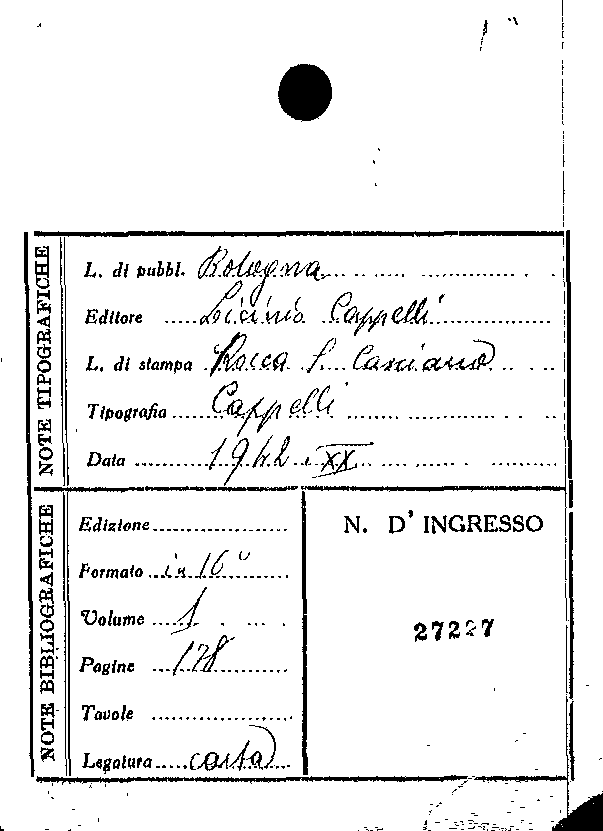 1"
NOTE TIPOGRAFICHE
L. di pubbl. Bologna
Editore Licinio Cappelli
L. di stampa Rocca S. Casciano
Tipografia Cappelli
Data 1942 . XX
NOTE BIBLIOGRAFICHE
Edizione
Formato in 16°
Volume 1
Pagine 178
Tavole
Legatura carta
N. D' INGRESSO
27227